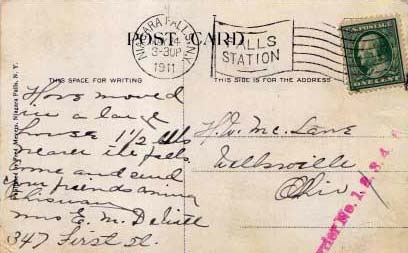 POST CARD
NIAGARA FALLS, N.Y.
3-30P
1911
FALLS
STATION
U.S. POSTAGE
ONE CENT
THIS SPACE FOR WRITING
THIS SIDE IS FOR THE ADDRESS
Have moved
in a large
house 1 1/2 blks
nearer the falls.
Come and send
your friends
Mrs E. M. DeWitt
347 First St.
H. D. Mc. Lane
Wellsville
Ohio
Niagara Falls, N. Y.
Order No. 1. 2. 3. 4.